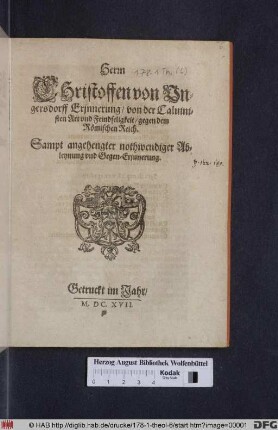 Herrn
Christoffen von Vn
gersdorff Erjnnerung/ von der Caluini-
sten Art vnd Feindseligkeit/ gegen dem
Römischen Reich.
Sampt angehengter nothwendiger Ab-
leynung vnd Gegen-Erjnnerung.
Getruckt im Jahr/
M. DC. XVII.
Herzog August Bibliothek Wolfenbüttel
Kodak
© HAB http://diglib.hab.de/drucke/178-1-theol-6/start.htm?image=00001
DFG